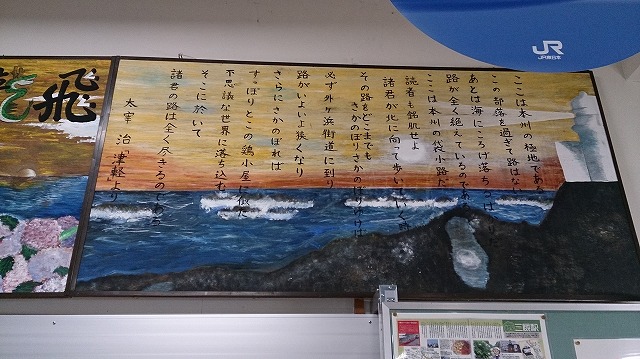 JR
JR東日本
ここは本州の極地である
この部落を過ぎて路はない
あとは海にころげ落ちるばかりだ
路が全く絶えているのである
ここは本州の袋小路だ
読者も銘肌せよ
諸君が北に向って歩いている時
その路をどこまでも
さかのぼりさかのぼり行けば
必ず外ヶ浜街道に到り
路がいよいよ狭くなり
さらにさかのぼれば
すっぽりとこの鶏小屋に似た
不思議な世界に落ち込み
そこに於いて
諸君の路は全く尽きるのである
太宰 治「津軽」より
龍飛
三厩駅